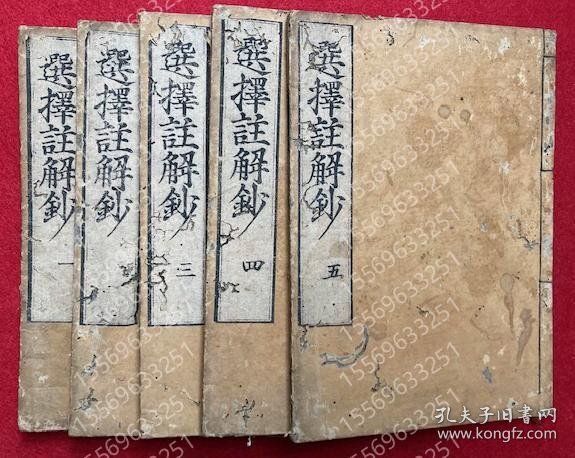 選擇註解鈔 五
選擇註解鈔 四
選擇註解鈔 三
選擇註解鈔
選擇註解鈔 一
15569633251
孔夫子旧书网
www.kongfz.com